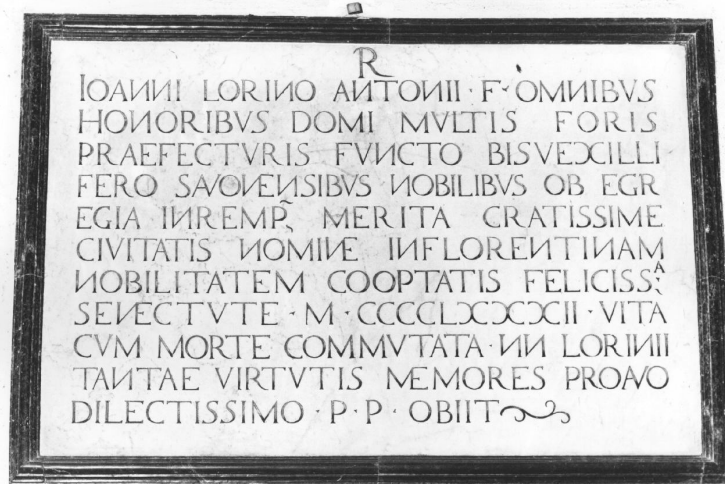 R
IOANNI LORINO ANTONII · F · OMNIBVS
HONORIBVS DOMI MVLTIS FORIS
PRAEFECTVRIS FVNCTO BISVEXILLI
FERO SAVONENSIBVS NOBILIBVS OB EGR
EGIA INREMP̃. MERITA CRATISSIME
CIVITATIS NOMINE INFLORENTINAM
NOBILITATEM COOPTATIS FELICISS:A
SENECTVTE · M · CCCCLXXXXII · VITA
CVM MORTE COMMVTATA · NN LORINII
TANTAE VIRTVTIS MEMORES PROAVO
DILECTISSIMO · P · P · OBIIT